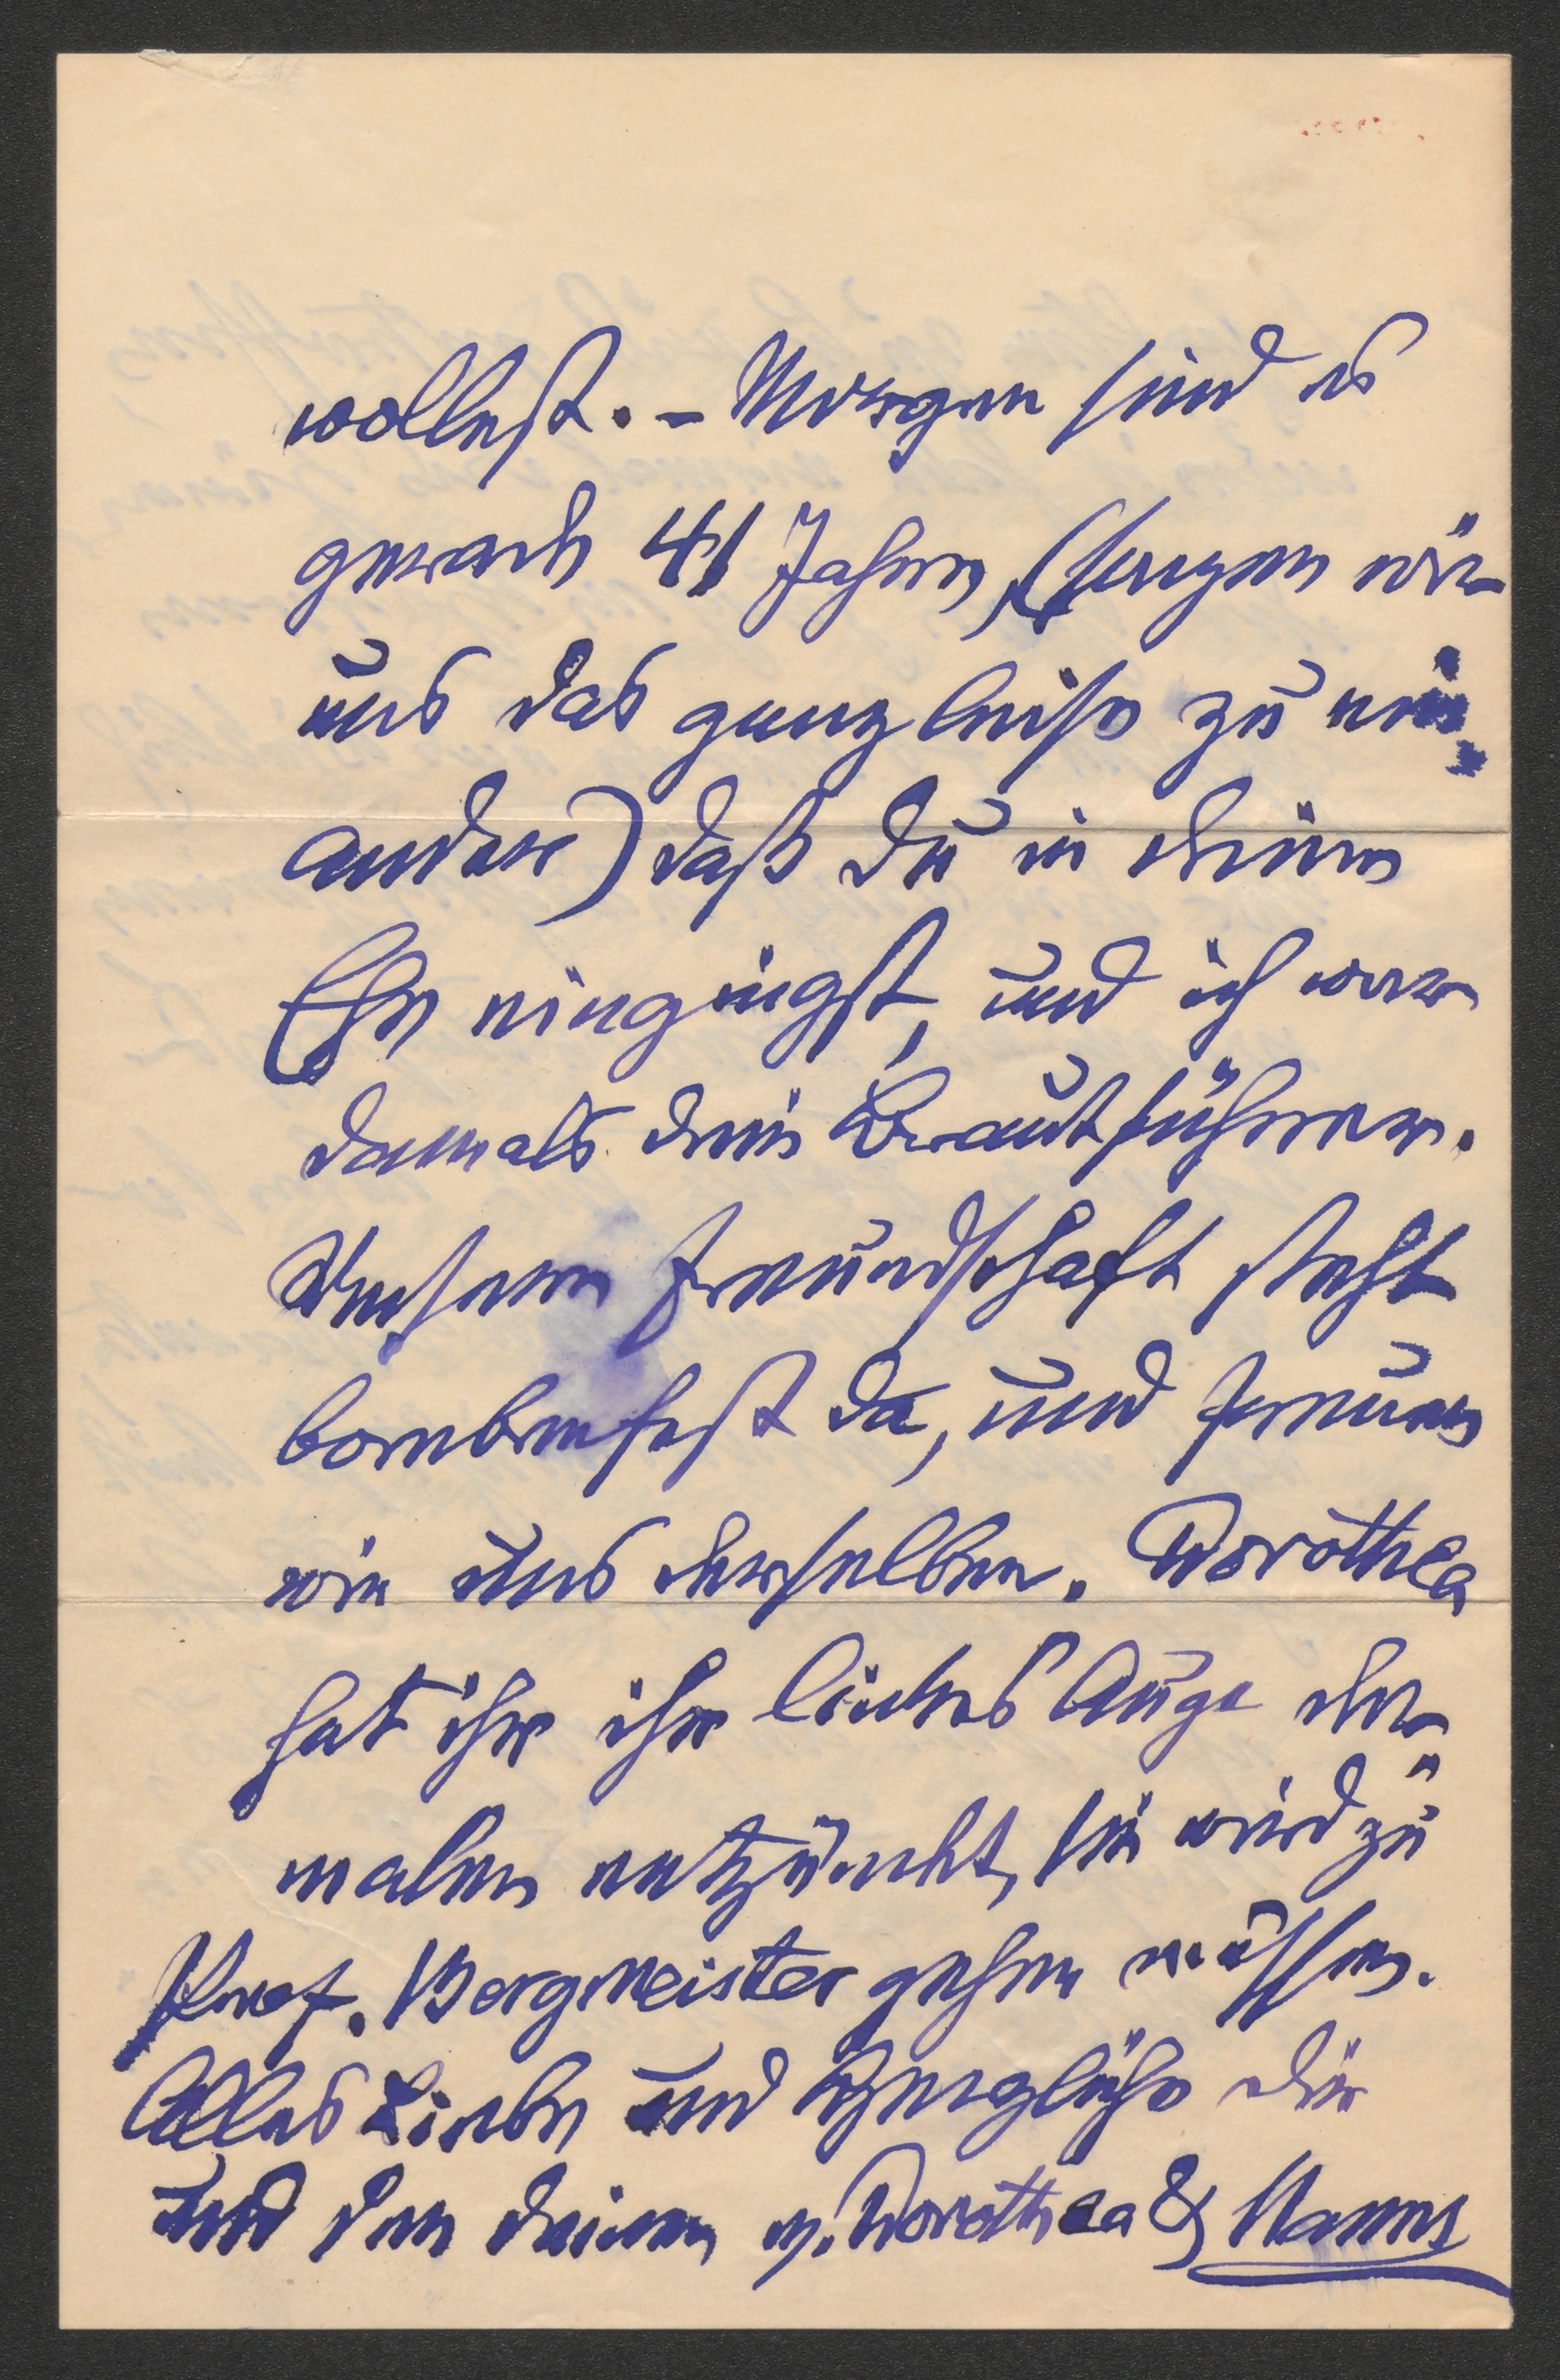 wollest. - Morgen sind es
gerade 41 Jahre, (sagen wir
uns das ganz leise zu ein
ander) daß du in deine
Ehe eingingst, und ich war
damals dein Brautführer.
Unsere Freundschaft steht
bombenfest da, und freuen
wir uns derselben. Dorothea
hat ihr ihr linkes Auge der
malen entzündet, sie wird zu
Prof. Bergmeister gehen müssen.
Alles Liebe und Herzliche dir
und den deinen v. Dorothea &